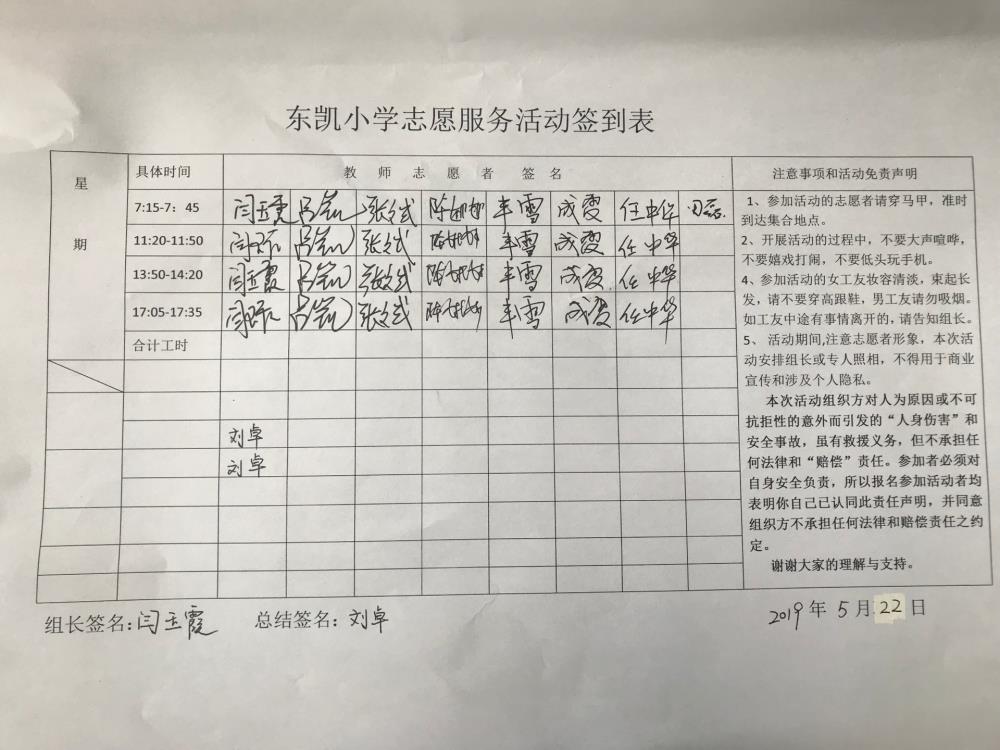 东凯小学志愿服务活动签到表
星期
具体时间 教师志愿者签名 注意事项和活动免责声明
7:15-7：45 闫玉霞 张斌 丰雪 成霞 任中华
11:20-11:50 张斌 丰雪 成霞 任中华
13:50-14:20 闫玉霞 张斌 丰雪 成霞 任中华
17:05-17:35 张斌 丰雪 成霞 任中华
合计工时
刘卓
刘卓
1、参加活动的志愿者请穿马甲，准时
到达集合地点。
2、开展活动的过程中，不要大声喧哗，
不要嬉戏打闹，不要低头玩手机。
4、参加活动的女工友妆容清淡，束起长
发，请不要穿高跟鞋，男工友请勿吸烟。
如工友中途有事情离开的，请告知组长。
5、 活动期间,注意志愿者形象，本次活
动安排组长或专人照相，不得用于商业
宣传和涉及个人隐私。
本次活动组织方对人为原因或不可
抗拒性的意外而引发的“人身伤害”和
安全事故，虽有救援义务，但不承担任
何法律和“赔偿”责任。参加者必须对
自身安全负责，所以报名参加活动者均
表明你自己已认同此责任声明，并同意
组织方不承担任何法律和赔偿责任之约
定。
谢谢大家的理解与支持。
组长签名:闫玉霞 总结签名：刘卓 2019年5月22日